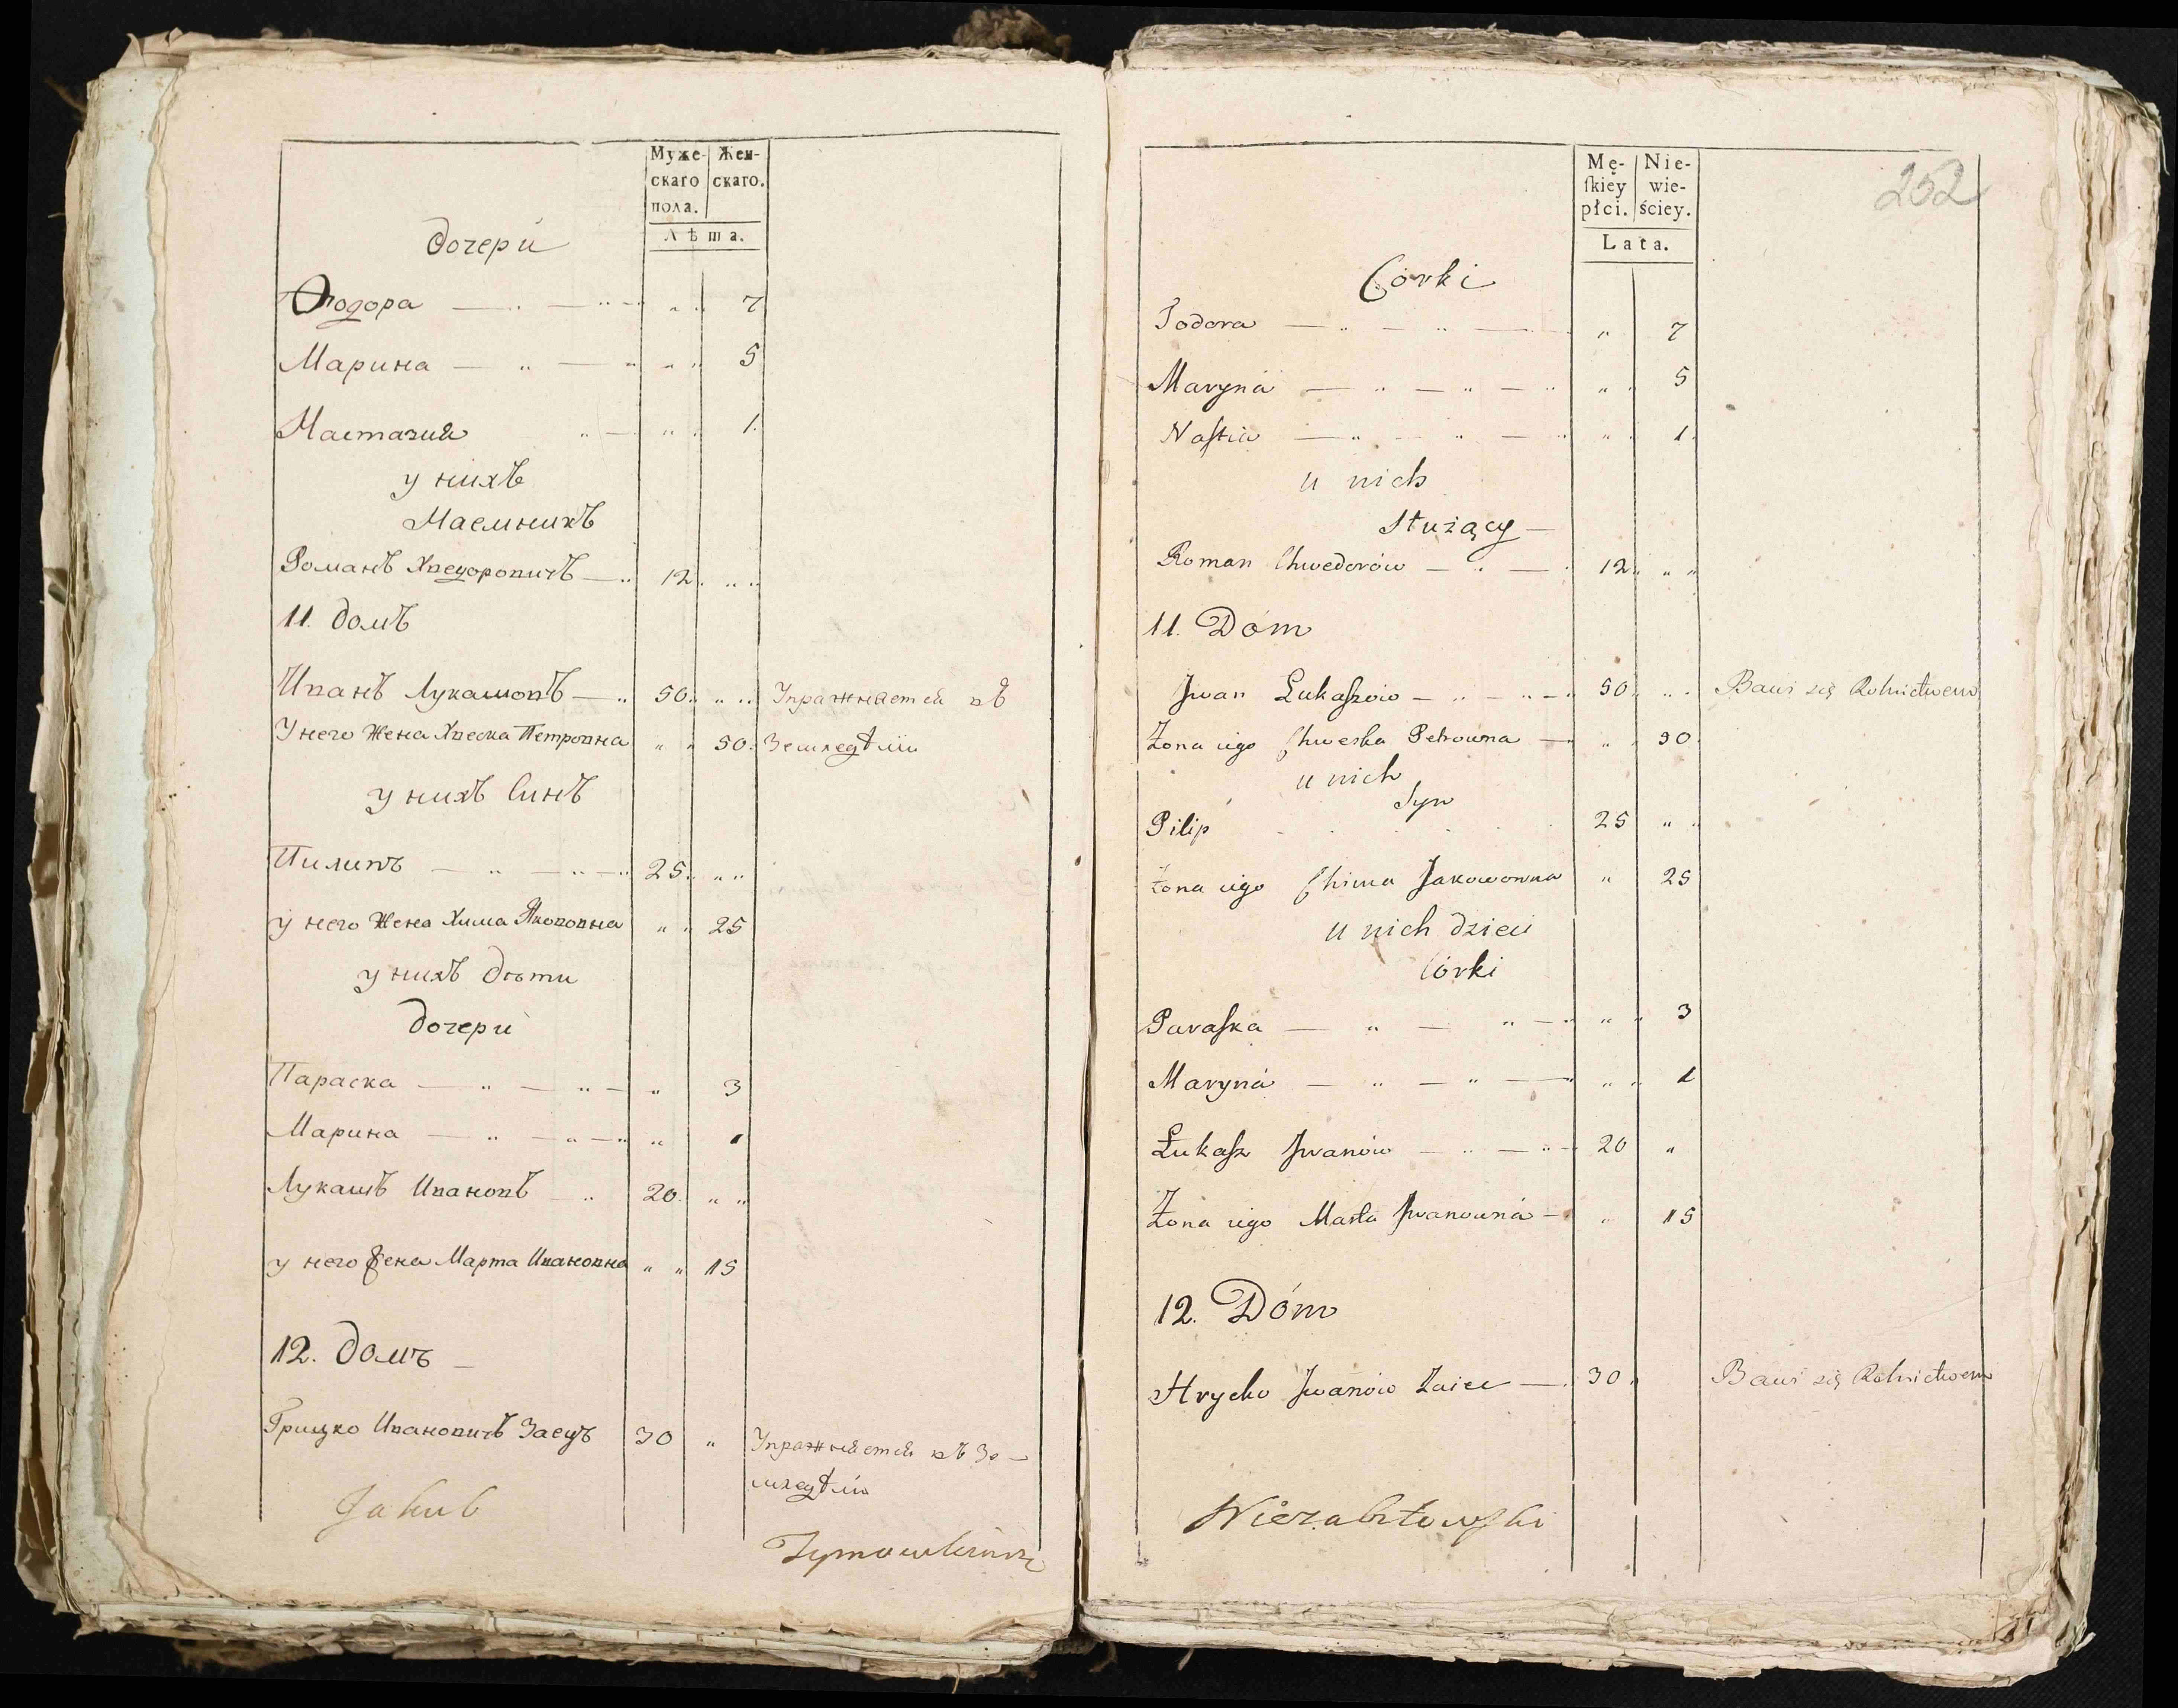 Муже- Жен-
скаго скаго.
пола.
Лѣта.
дочери
Ѳіодора — „ — „ — „ 7
Марина — „ — „ „ 5
Настазия „ — „ 1.
у нихъ
Наемникъ
Романъ Хведоровичъ — „ 12. „ „
11. домъ
Иванъ Лукашовъ — „ 50. „ „ Упражняется въ
У него Жена Хвеска Петровна „ „ 50. Земледѣлии
у нихъ Синъ
Пилипъ — „ — „ — „ 25. „ „
у него Жена Хима Якововна „ „ 25
у нихъ дѣти
дочери
Параска — „ — „ — „ 3
Марина — „ — „ — „ „ 1
Лукашъ Ивановъ — „ 20. „ „
у него Жена Марта Ивановна „ „ 15
12. домъ —
Грицко Ивановичъ Заецъ 30 „ Упражняется въ Зе-
мледѣлии
Jakub
252
Mę- Nie-
ſkiey wie-
płci. ściey.
Lata.
Córki
Todora — „ — „ — „ 7
Maryna — „ — „ — „ „ 5
Naſtia — „ — „ — „ „ 1.
u nich
Służący —
Roman Chwedorów — „ — 12 „ „
11. Dóm
Jwan Lukaſzów — „ — „ — 50. „ „ Bawi się Rolnictwem
Żona iego Chweska Petrowna — „ 50.
u nich
Syn
Pilip 25 „ „
Żona iego Chima Jakowowna „ 25
u nich dzieci
Córki
Paraſka — „ — „ — „ „ 3
Maryna — „ — „ — „ „ 1
Łukaſz Jwanów — „ — „ — 20 „
Żona iego Marta Jwanowna — „ 15
12. Dóm
Hrycko Jwanów Zaiec — 30. Bawi się Rolnictwem
Niezabitowſki